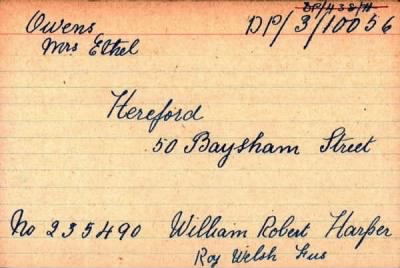 DP/438/H
Owens DP/3/10056
Mrs Ethel
Hereford
50 Baysham Street
No 235490 William Robert Harper
Roy Welsh Fus